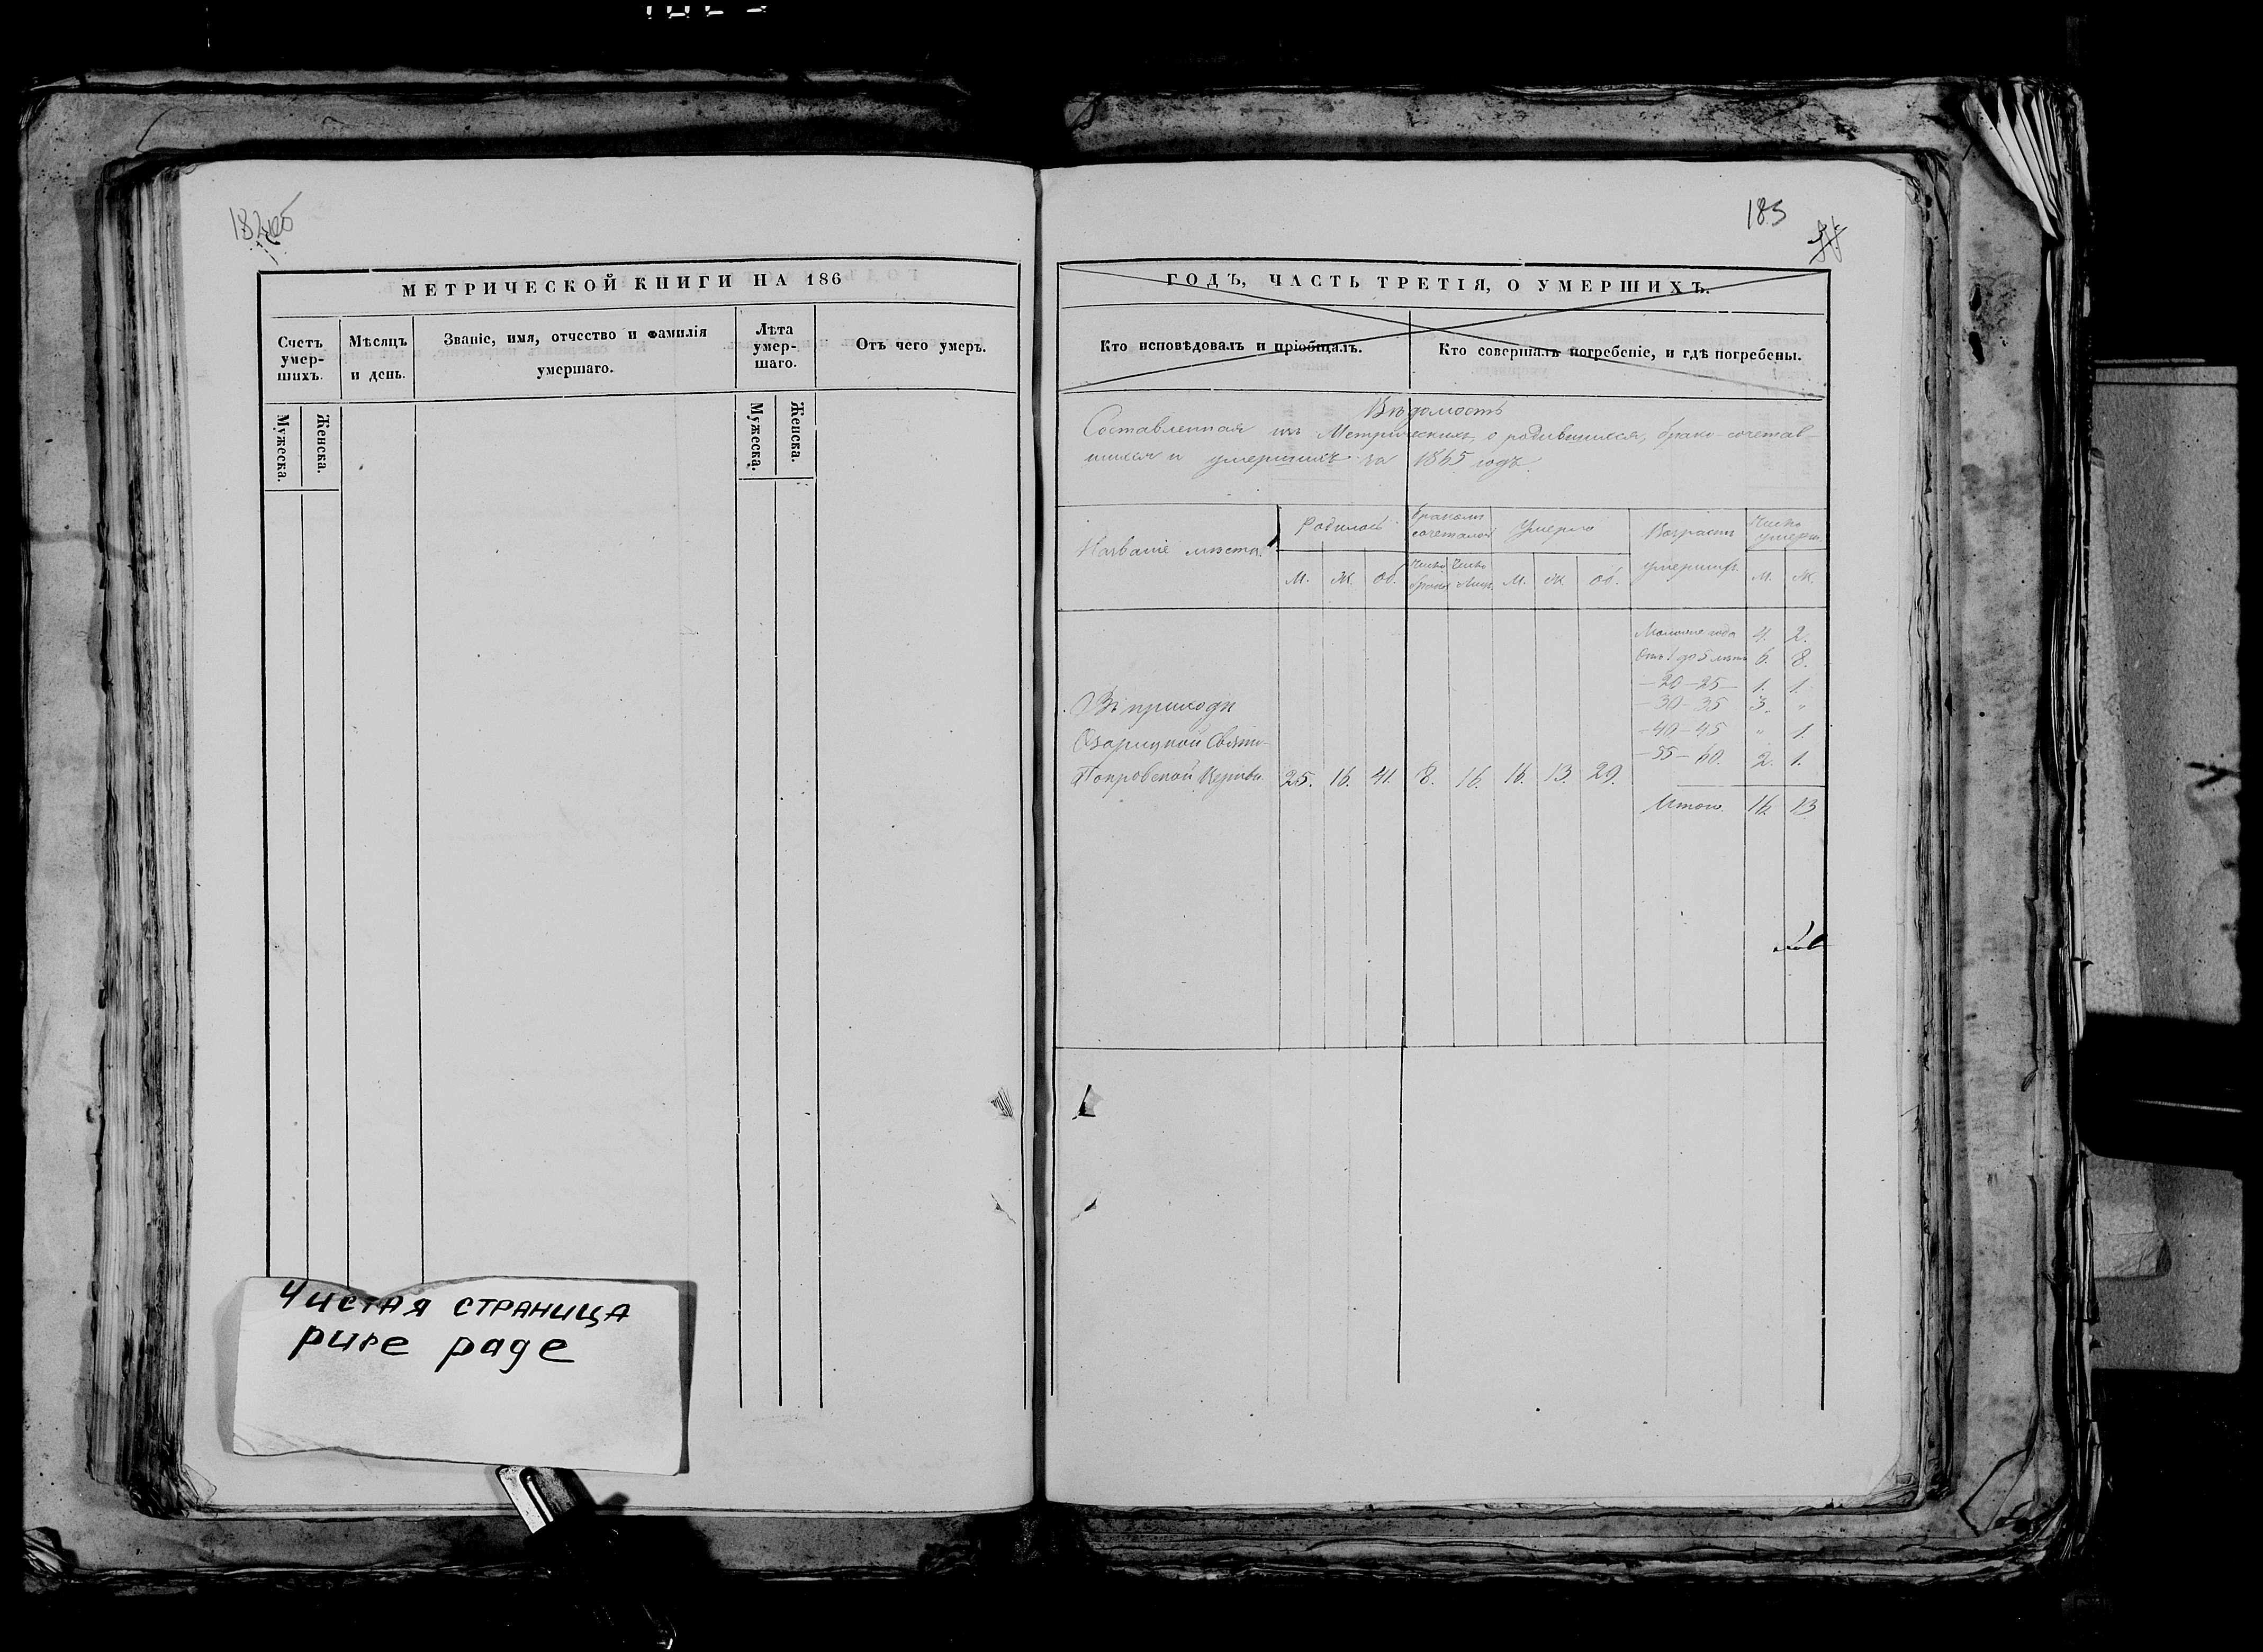 182 об
МЕТРИЧЕСКОЙ КНИГИ НА 186
Счетъ умер-шихъ.
Мѣсяцъ и день.
Званіе, имя, отчество и фамилія умершаго.
Лѣта умер-шаго.
Отъ чего умеръ.
Мужеска.
Женска.
Мужеска.
Женска.
Чистая страница
pure page
183
ГОДЪ, ЧАСТЬ ТРЕТІЯ, О УМЕРШИХЪ.
Кто исповѣдовалъ и пріобщалъ.
Кто совершалъ погребеніе, и гдѣ погребены.
Вѣдомость
Составленная изъ Метрическихъ о родившихся, брако-сочетав-
шихся и умершихъ за 1865 годъ.
Названіе мѣста.
Родилось
Бракомъ сочеталось
Умерло
Возрастъ умершихъ
Число умерш.
М. Ж. Об. Число браков Число лицъ М. Ж. Об. М. Ж.
Моложе года 4. 2.
Отъ 1 до 5 лѣтъ 6. 8.
— 20 — 25 — 1. 1.
— 30 — 35 3. "
— 40 — 45 " 1.
— 55 — 60. 2. 1.
Въ приходѣ
Озарицкой Свято-
Покровской Церкви 25. 16. 41. 8. 16. 16. 13. 29.
Итого. 16. 13